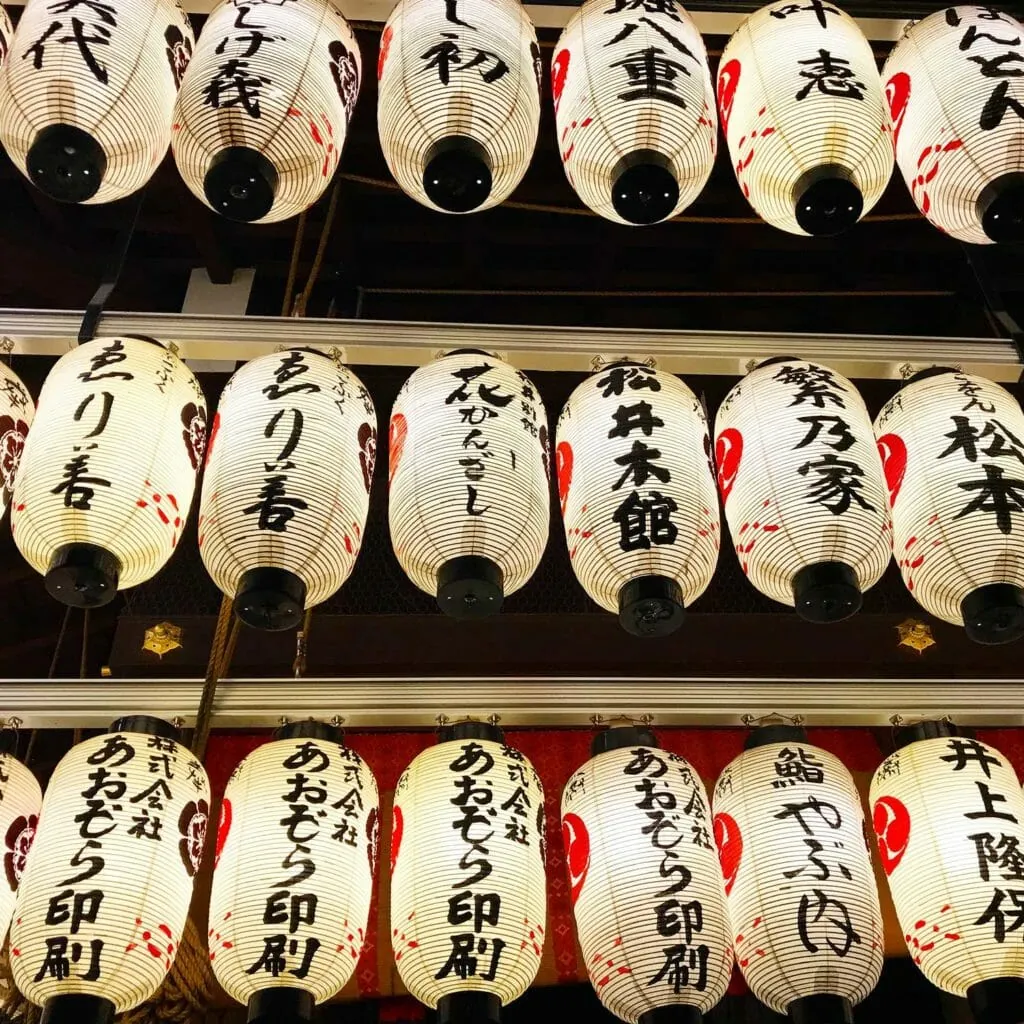 代
し初
八重
叶 恵
ほんとん
ゑり善
ゑり善
花かんざし
松井本館
繁乃家
松本
株式会社
あおぞら印刷
株式会社
あおぞら印刷
株式会社
あおぞら印刷
あおぞら印刷
鮨 やぶ内
井上隆保